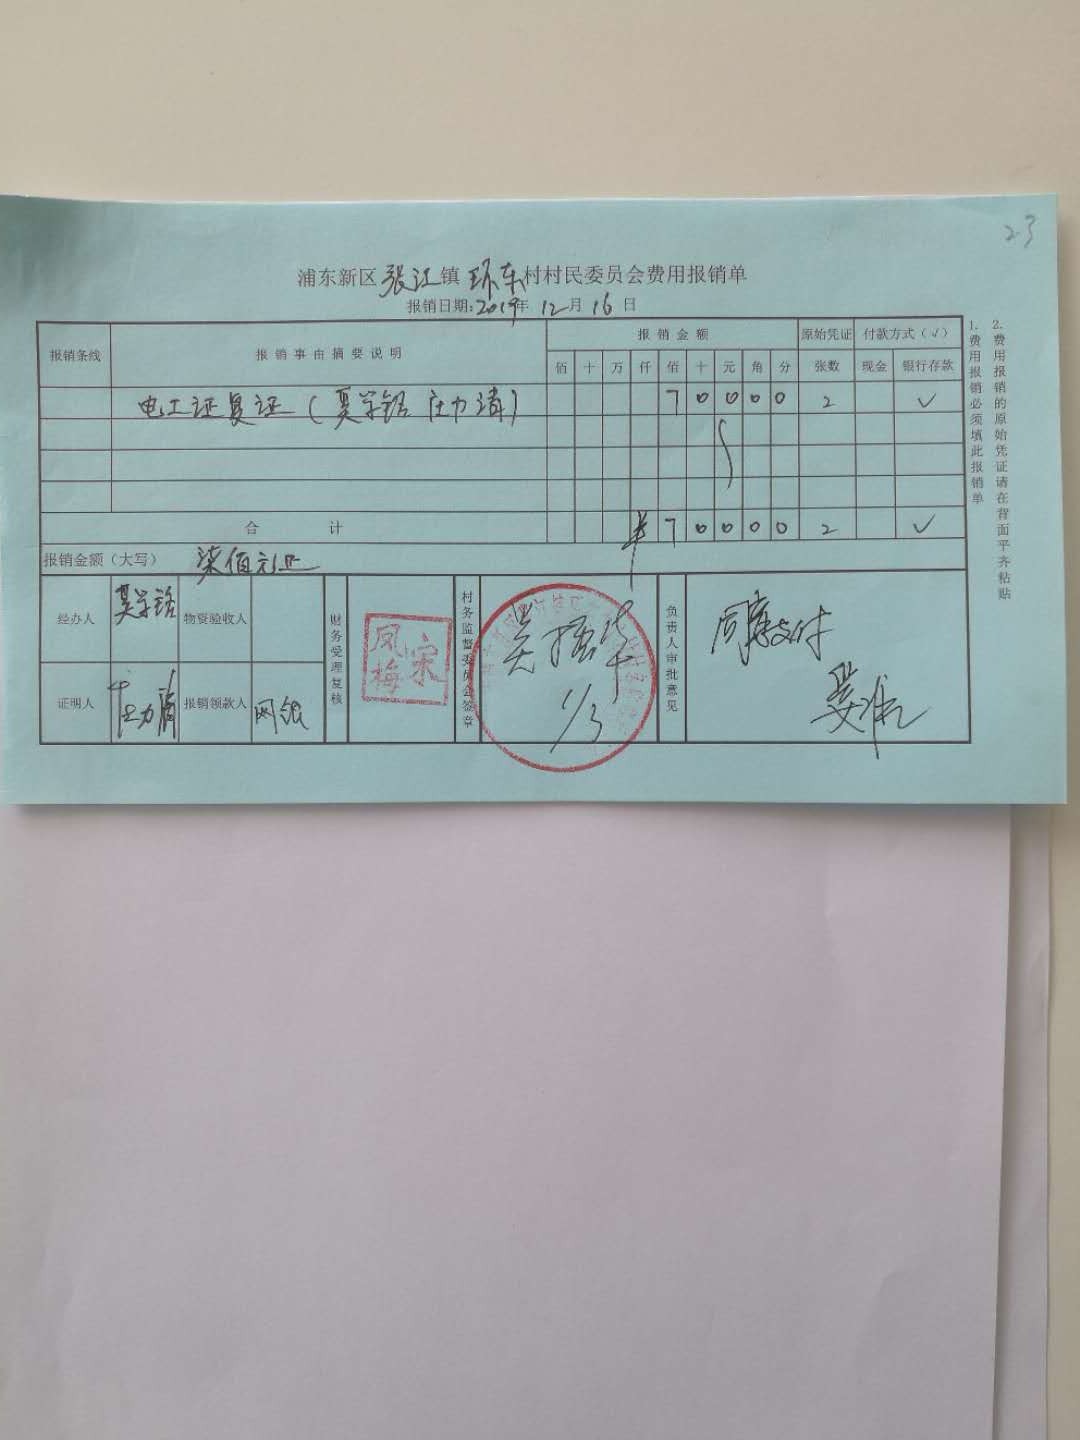 23
浦东新区张江镇环东村村民委员会费用报销单
报销日期:2019年12月16日
报销条线 报销事由摘要说明 报销金额 原始凭证 付款方式(√)
佰 十 万 仟 佰 十 元 角 分 张数 现金 银行存款
电工证复证(吴学铭 庄力清) 7 0 0 0 0 2 √
合计 ¥ 7 0 0 0 0 2 √
报销金额(大写) 柒佰元正
经办人 吴学铭 物资验收人
证明人 庄力清 报销领款人 网银
财务受理复核
宋凤梅
村务监督委员会签章
1/3
负责人审批意见
同意支付
1.费用报销必须填此报销单
2.费用报销的原始凭证请在背面平齐粘贴